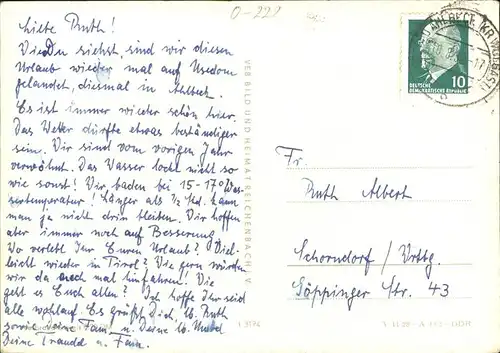 Liebe Ruth!
Wie Du siehst, sind wir diesen
Urlaub wieder mal auf Usedom
gelandet, diesmal in Ahlbeck.
Es ist immer wieder schön hier.
Das Wetter dürfte etwas beständiger
sein. Wir sind vom vorigen Jahr
verwöhnt. Das Wasser lockt nicht so
wie sonst! Wir baden bei 15-17° Was-
sertemperatur! Länger als 1/2 Std. kann
man ja nicht drin bleiben. Wir hoffen
aber immer noch auf Besserung.
Wo verlebt Ihr Euren Urlaub? Viel-
leicht wieder in Tirol? Wie gern würden
wir da auch mal hinfahren. Wie
geht es Euch allen? Ich hoffe Ihr seid
alle wohlauf. Es grüßt Dich, lb. Ruth
sowie Deine Fam. u. Deine lb. Mutti
Deine Traudel u. Fam.
O-222
VEB BILD UND HEIMAT REICHENBACH I. V.
10
DEUTSCHE
DEMOKRATISCHE REPUBLIK
Fr.
Ruth Albert
Schorndorf / Wttbg.
Göppinger Str. 43